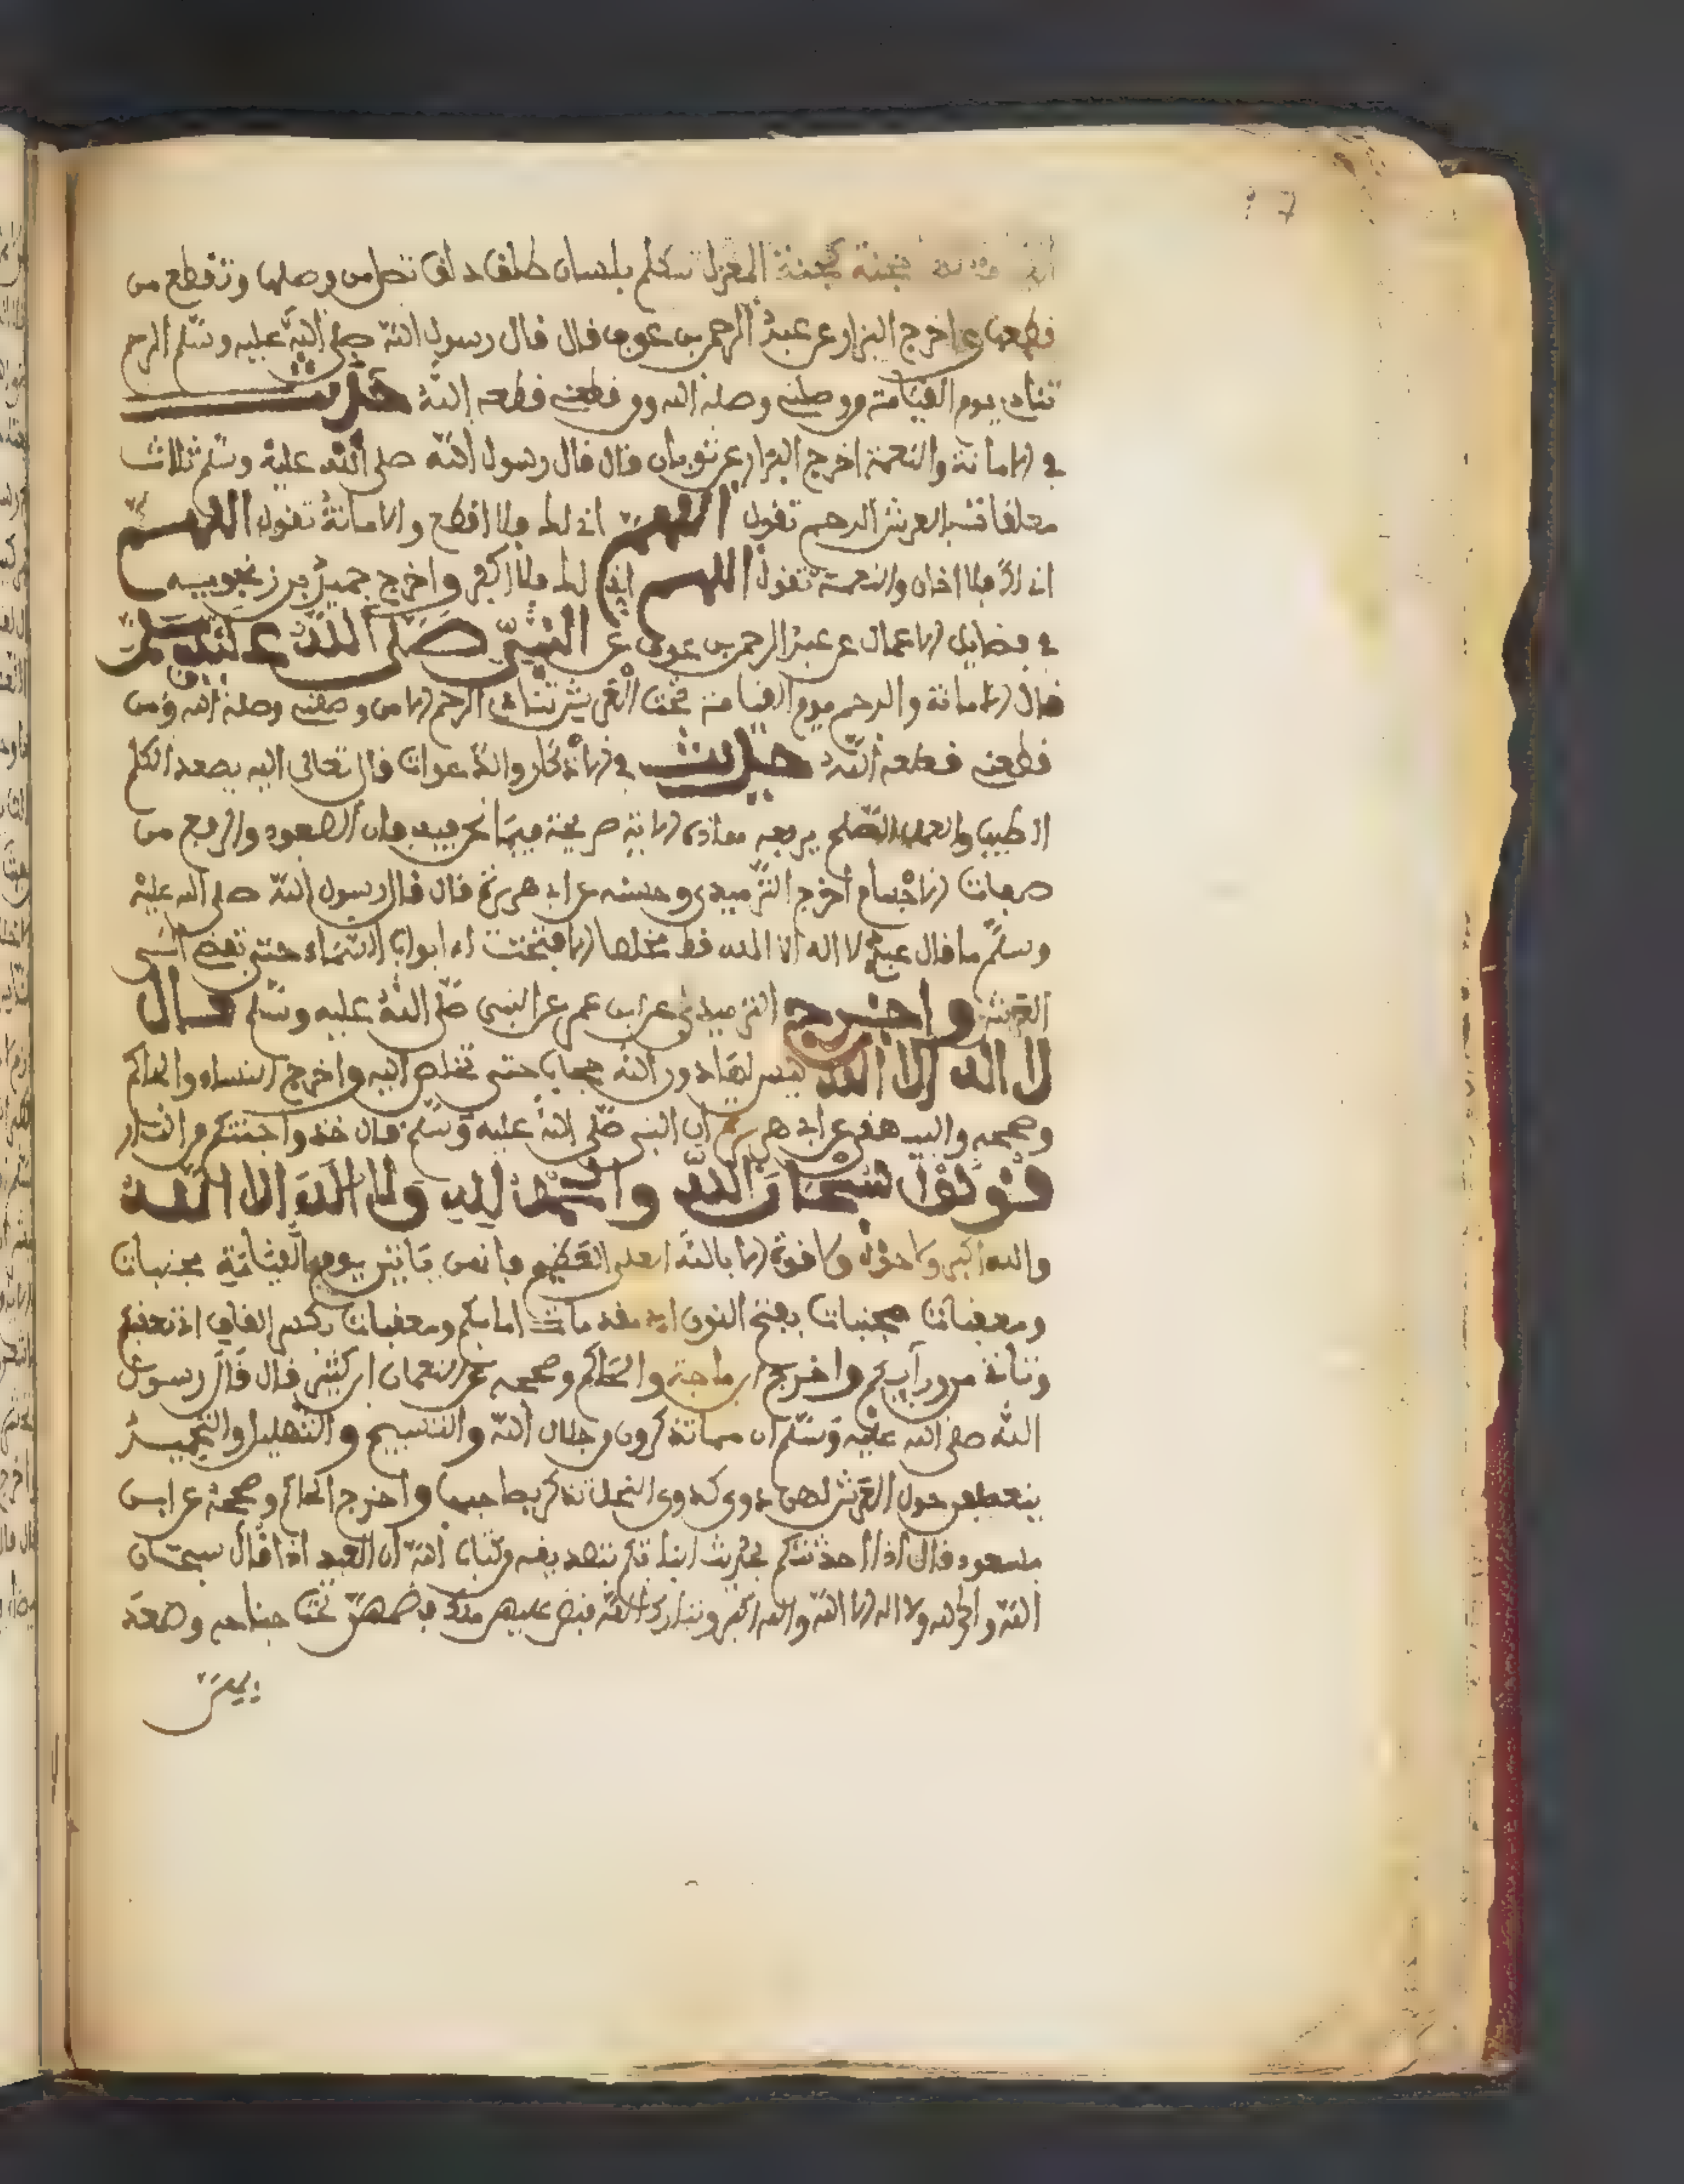 حجنة كحجنة المغزل تتكلم بلسان طلق ذلق تصل من وصلها وتقطع من
قطعها واخرج البزار عن عبد الرحمن بن عوف قال قال رسول الله صلى الله عليه وسلم الرحم
تنادي يوم القيامة من وصلني وصله الله ومن قطعني قطعه الله حديث
في الامانة والنعمة اخرج البزار عن ثوبان قال قال رسول الله صلى الله عليه وسلم ثلاث
معلقات بالعرش الرحم تقول اللهم اني بك فلا اقطع والامانة تقول اللهم
اني بك فلا اخان والنعمة تقول اللهم اني بك فلا اكفر واخرج حميد بن زنجويه
في فضايل الاعمال عن عبد الرحمن بن عوف عن النبي صلى الله عليه وسلم
قال الامانة والرحم يوم القيامة تحت العرش تنادي الرحم الا من وصلني وصله الله ومن
قطعني قطعه الله حديث في الاذكار والدعوات قال تعالى اليه يصعد الكلم
الطيب والعمل الصلح يرفعه هذه الاية صريحة فيما نحن فيه فان الصعود والرفع من
صفات الاجسام اخرج الترميدي وحسنه عن ابي هريرة قال قال رسول الله صلى الله عليه
وسلم ما قال عبد لا اله الا الله قط مخلصا الا فتحت له ابواب السماء حتى تفضي الى
العرش واخرج الترميدي عن ابن عمر عن النبي صلى الله عليه وسلم قال
لا اله الا الله ليس لها دون الله حجاب حتى تخلص اليه واخرج النساء والحاكم
وصححه والبيهقي عن ابي هريرة ان النبي صلى الله عليه وسلم قال خذوا جنتكم من النار
قولوا سبحان الله والحمد لله ولا اله الا الله
والله اكبر ولا حول ولا قوة الا بالله العلي العظيم فانهن ياتين يوم القيامة مجنبات
ومعقبات مجنبات بفتح النون اي مقدمات امامكم ومعقبات بكسر القاف اي تعقبكم
وتاتي من ورايكم واخرج ابن ماجة والحاكم وصححه عن النعمان ابن بشير قال قال رسول
الله صلى الله عليه وسلم ان مما تذكرون من جلال الله والتسبيح والتهليل والتحميد
ينعطفن حول العرش لهن دوي كدوي النحل تذكر بصاحبها واخرج الحاكم وصححه عن ابن
مسعود قال اذا احدثتكم بحديث انباتكم بتصديقه من كتاب الله ان العبد اذا قال سبحان
الله والحمد لله ولا اله الا الله والله اكبر وتبارك الله قبض عليهن ملك فضمهن تحت جناحه وصعد
بهن